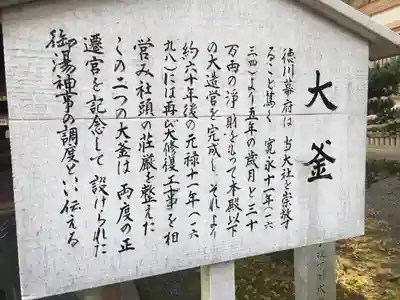 大釜
徳川幕府は当大社を崇敬す
ること篤く寛永十一年(一六
三四)より五年の歳月と三十
万両の浄財をもって本殿以下
の大造営を完成し、それより
約六十年後の元禄十一年(一六
九八)には再び大修復工事を相
営み社頭の荘厳を整えた
この二つの大釜は両度の正
遷宮を記念して設けられた
御湯神事の調度とい伝える